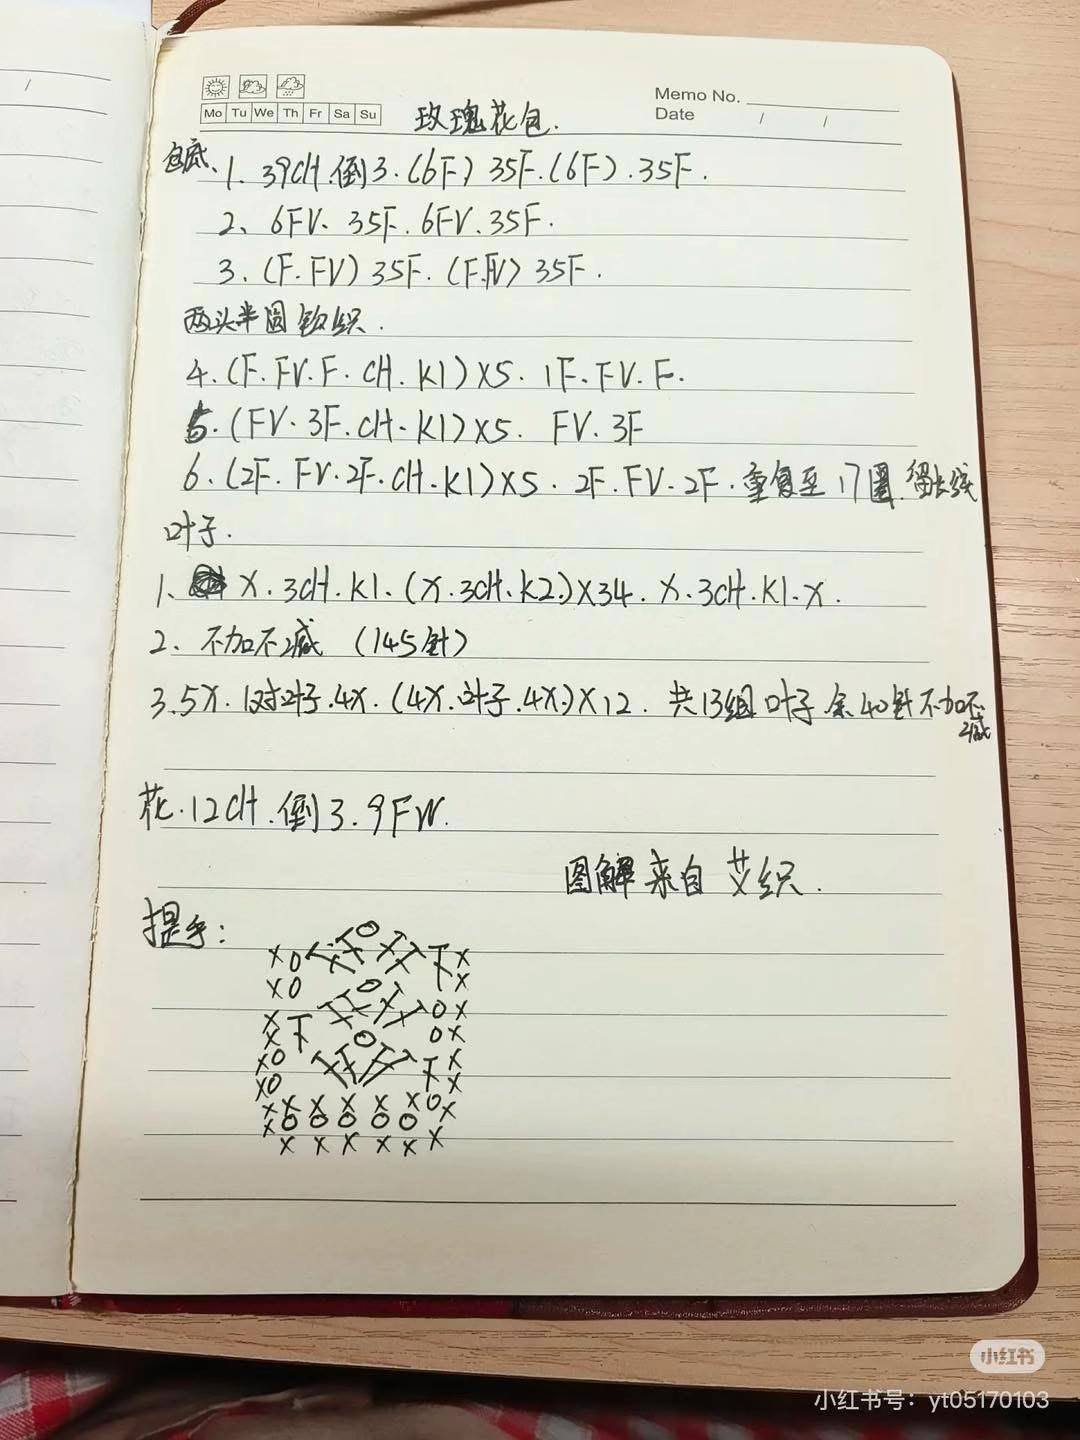 Mo Tu We Th Fr Sa Su
Memo No.
Date / /
玫瑰花包.
包底、1、39CH.倒3.(6F) 35F.(6F).35F.
2、6FV、35F.6FV.35F.
3.(F.FV) 35F.(F.FV) 35F.
两头半圆钩织.
4.(F.FV.F.CH.K1)×5.1F.FV.F.
5.(FV.3F.CH.K1)×5. FV.3F
6.(2F.FV.2F.CH.K1)×5.2F.FV.2F.重复至17圈.留长线
叶子.
1、X.3CH.K1.(X.3CH.K2.)×34.X.3CH.K1.X.
2、不加不减 (145针)
3.5X.1对叶子.4X.(4X.叶子.4X.)×12.共13组叶子.余40针不加不减
花.12CH.倒3.9FW.
图解来自艾织.
提手:
小红书
小红书号:yt05170103